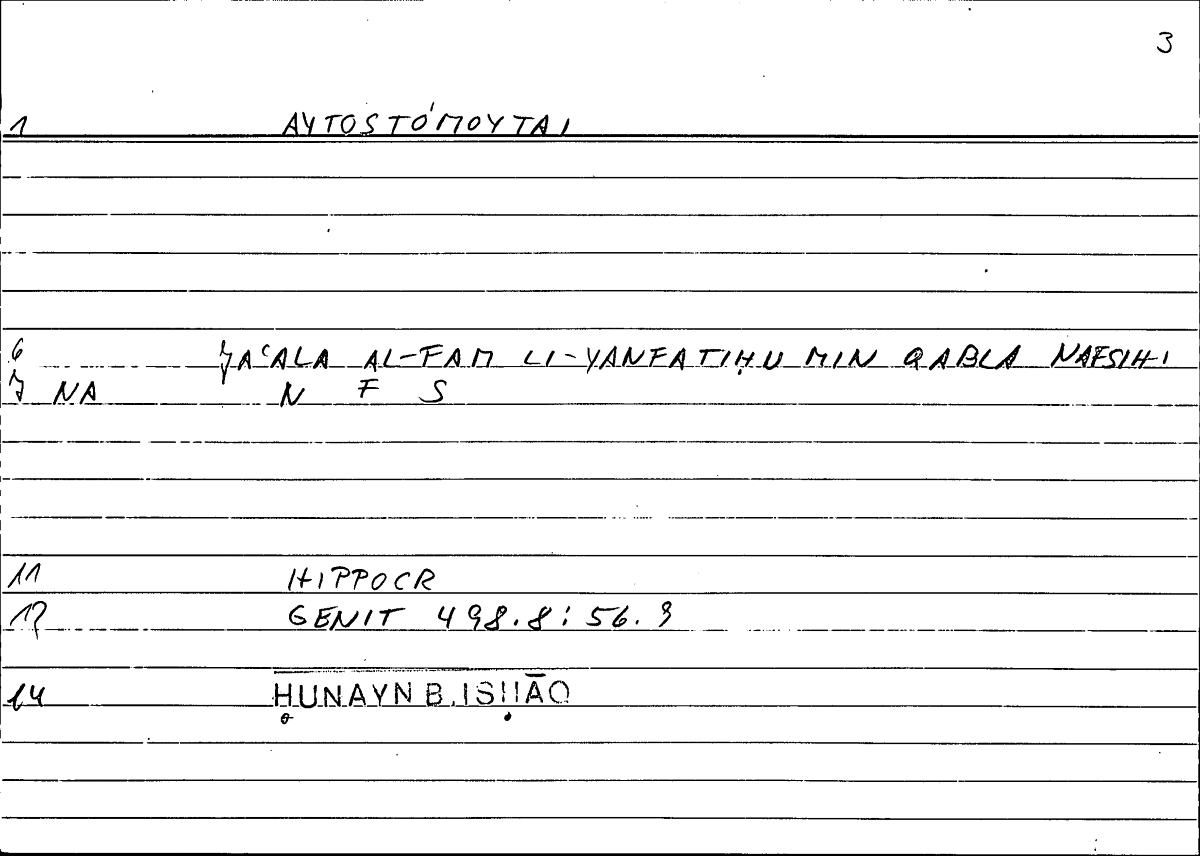 3
1 ΑΥΤΟSΤΌΜΟΥΤΑΙ
6 ǦAʿALA AL-FAM LI-YANFATIḤU MIN QABLA NAFSIHI
7 NA N F S
11 HIPPOCR
12 GENIT 498.8: 56.9
14 ḤUNAYN B. ISḤĀQ